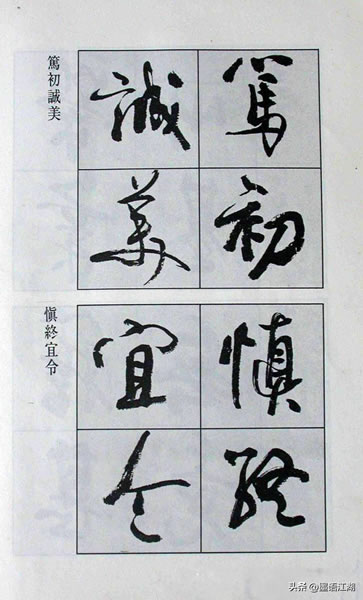 篤初
誠美
篤初誠美
慎終
宜令
慎終宜令
头条@墨语江湖